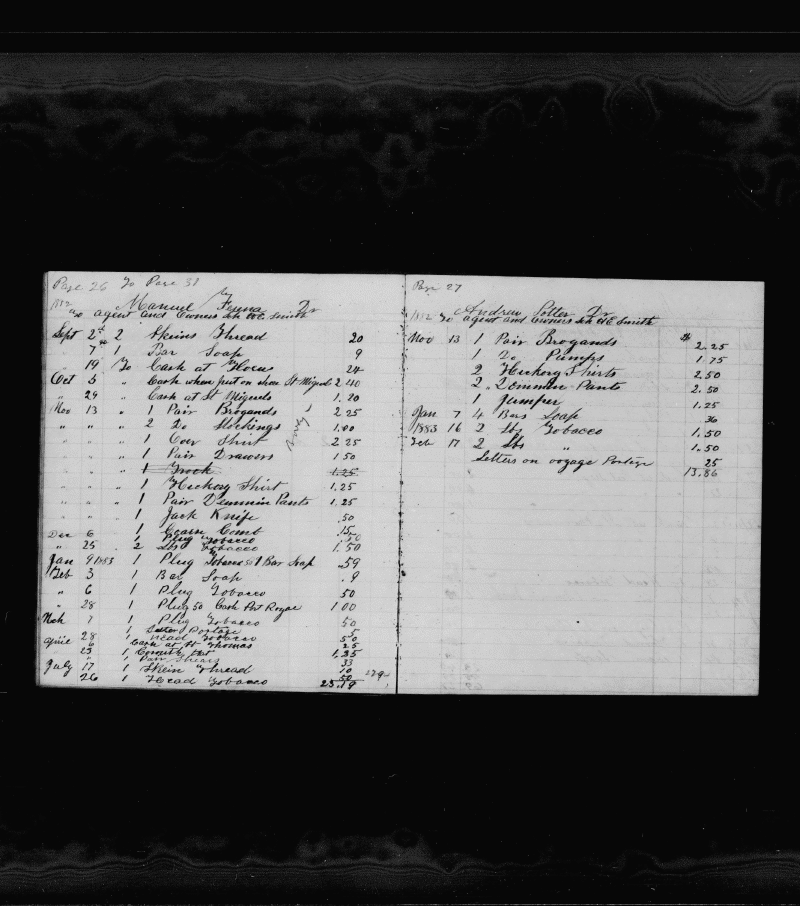 Page 26 To Page 38
Manuel Dr
1882 To agent and Owners Sch H E Smith
Sept 2nd 2 Skeins Thread 20
" 7th 1 Bar Soap 9
" 19 To Cash at Flores 24
Oct 5 " Cash when put on shore St Miguels 2 40
" 29 " Cash at St Miguels 1.20
Nov 13 " 1 Pair Brogands 2 25
" " " 2 Do Stockings 1.00
" " " 1 Over Shirt 2 25
" " " 1 Pair Drawers 1 50
" " " 1 Frock 1.25
" " " 1 Hickory Shirt 1.25
" " " 1 Pair Demmin Pants 1.25
" " " 1 Jack Knife .50
1 Coarn Comb 15
Dec 6 1 Plug Tobacco 50
" 25 " 2 Lbs Tobacco 1.50
Jan 9 1883 1 Plug Tobacco 50 1 Bar Soap .59
Feb 3 1 Bar Soap .9
" 6 1 Plug Tobacco 50
" 28 1 Plug 50 Cash Port Royal 1 00
Mch 7 1 Plug Tobacco 50
1 Letter Postage 5
" 28 1 Head Tobacco 50
April 6 Cash at St Thomas 25
" 23 1 Hat 1.35
" 1 Pair Shears 33
July 17 1 Skein Thread 10
" 26 1 Head Tobacco 50
23.19
Page 27
Andrew Potter Dr
1882 To agent and Owners Sch H E Smith
Nov 13 1 Pair Brogands $ 2.25
1 Do Pumps 1.75
2 Hickory Shirts 2.50
2 Demmin Pants 2.50
1 Jumper 1.25
Jan 7 4 Bars Soap 36
1883 16 2 Lbs Tobacco 1.50
Feb 17 2 Lbs " 1.50
Letters on voyage Postage 25
13.86